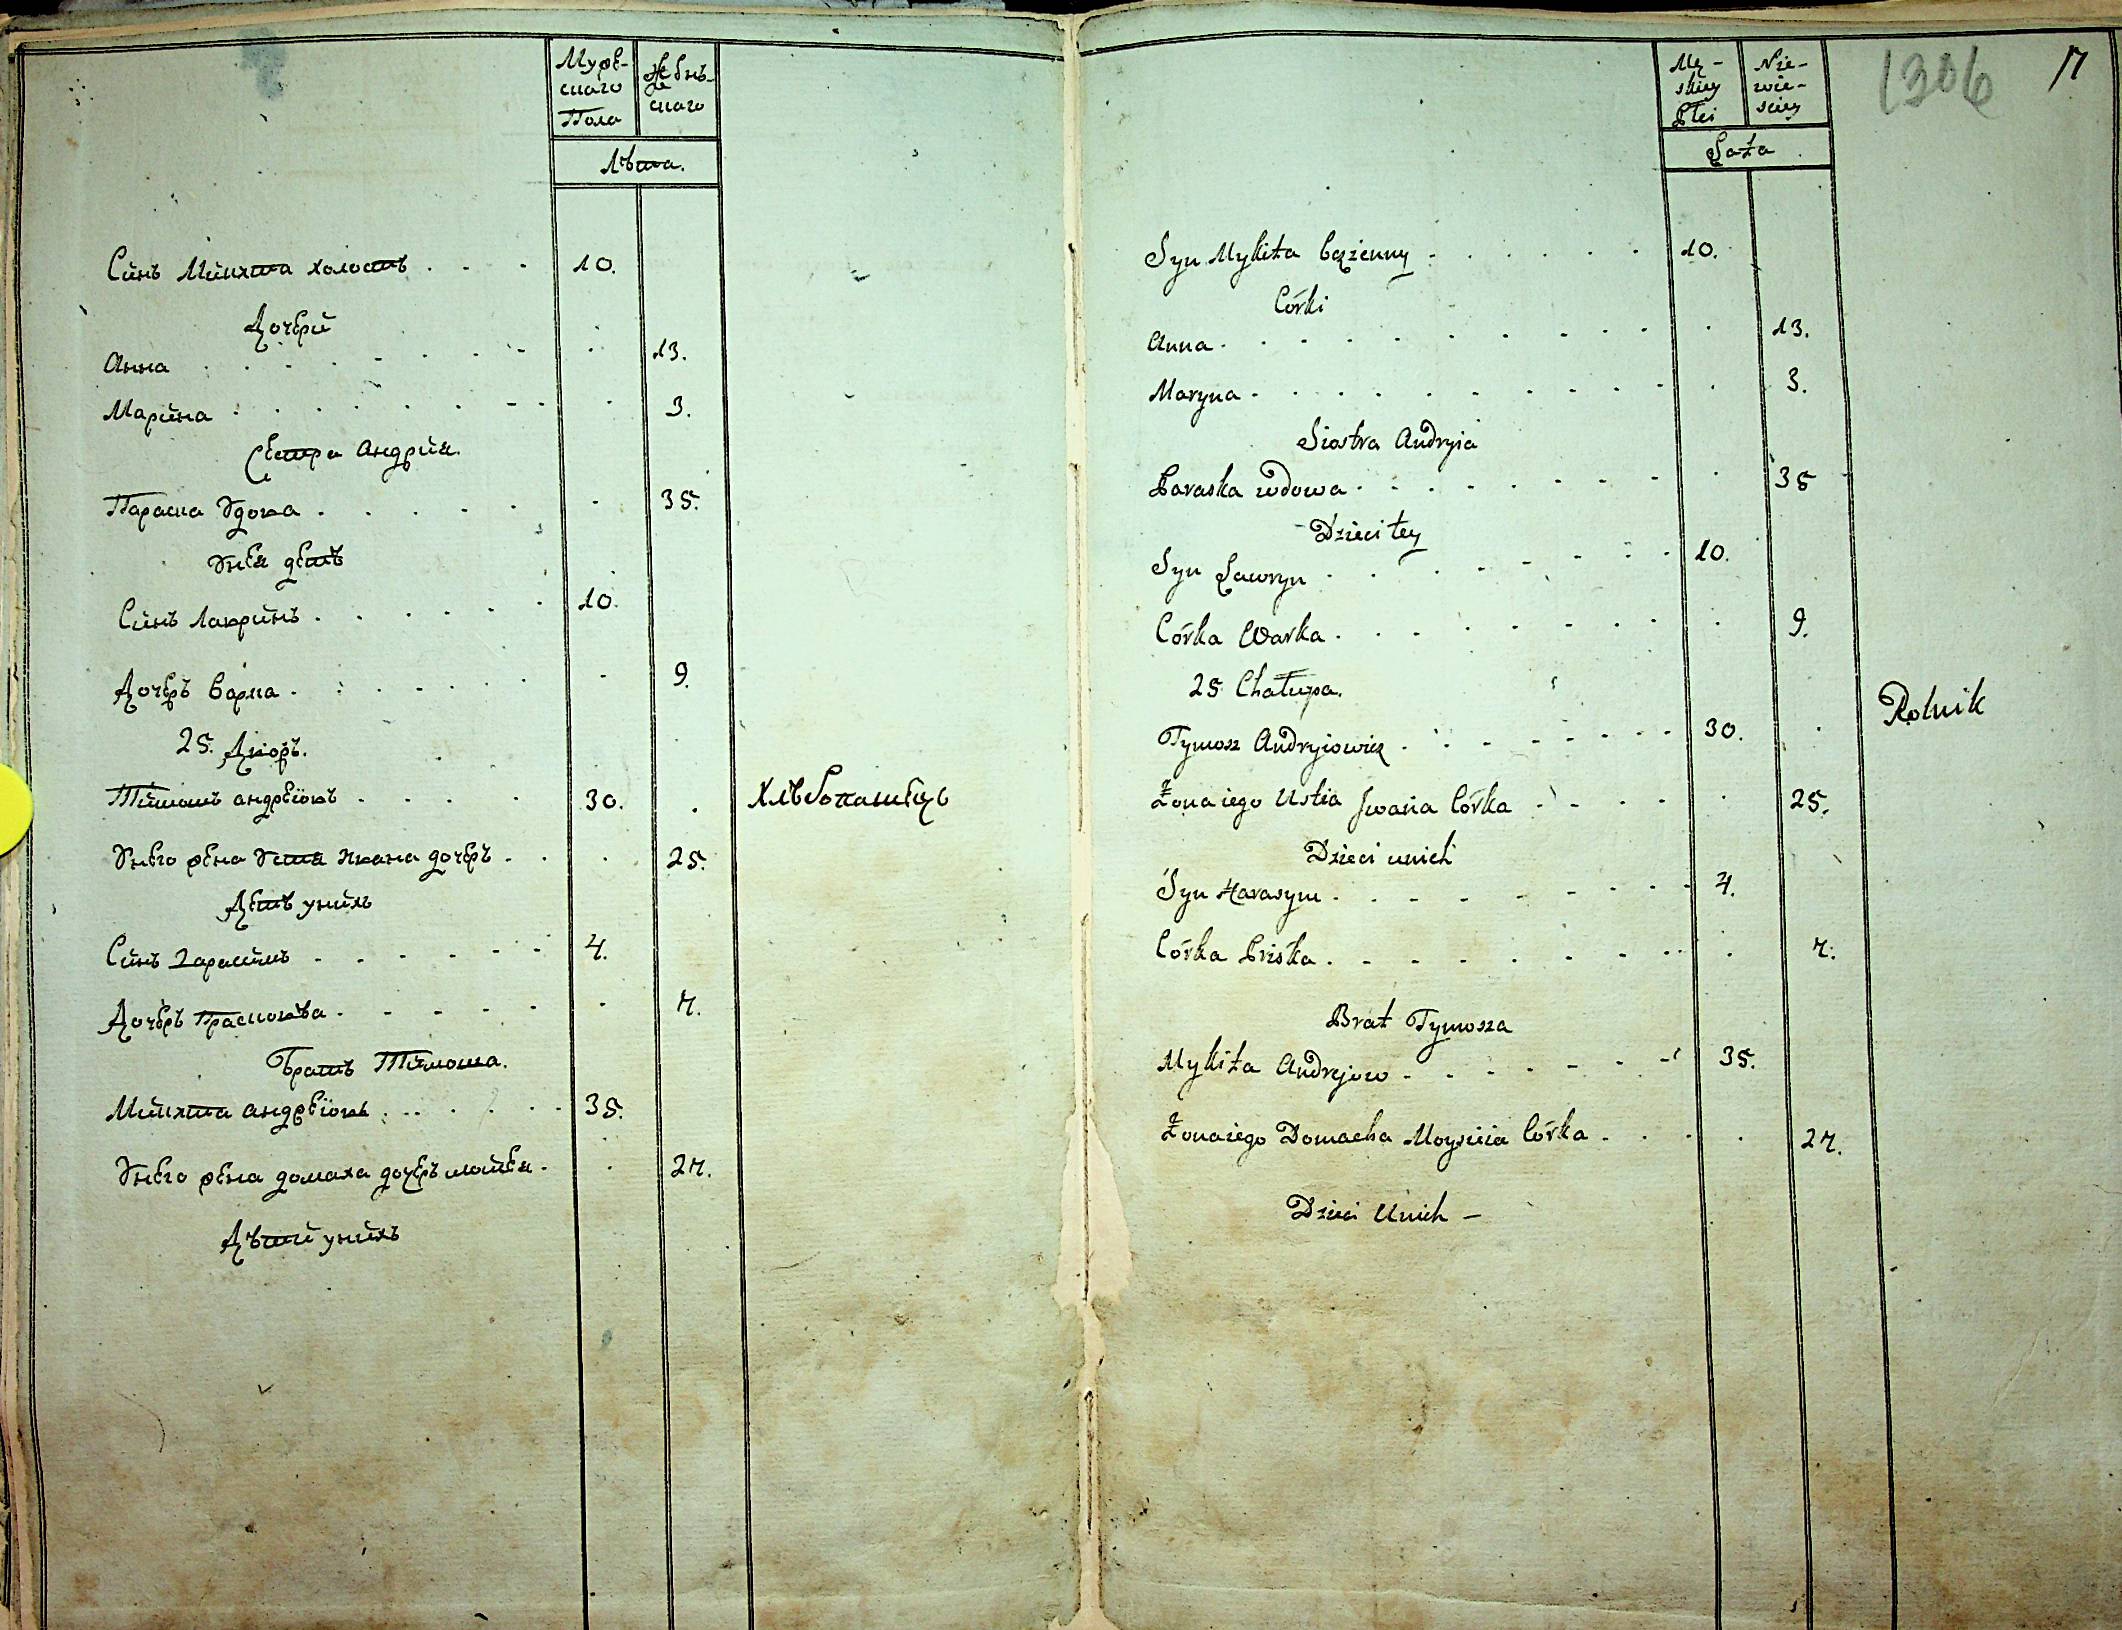 Муже-
скаго
Пола
Женъ-
скаго
Лѣта.
Синъ Микита холостъ . . . 10.
Дочери
Анна . . . . . . . . 13.
Марина . . . . . . . . 3.
Сестра Андрия.
Параска Удова . . . . . . 35.
Унея детѣ
Синъ Лавринъ . . . . . . 10.
Дочеръ Варка . . . . . . . 9.
25. Дворъ.
Тимошъ андреіовъ . . . . 30. . Хлѣбопашецъ
Унего жена Устя Ивана дочеръ . . . 25.
Детѣ унихъ
Синъ Гарасимъ . . . . . . 4.
Дочеръ Прасковѣа . . . . . . 7.
Братъ Тимоша.
Микита андреіовъ . . . . . 35.
Унего жена домаха дочеръ мойсея . . 27.
Дѣти унихъ
1306 7
Mę-
skiey
Płci
Nie-
wie-
sciey
Lata
Syn Mykita bezżenny . . . . . . 10.
Córki
Anna . . . . . . . . . 13.
Maryna . . . . . . . . . 3.
Siostra Andryia
Paraska wdowa . . . . . . . . 35
Dzieci tey
Syn Lawryn . . . . . . 10.
Córka Warka . . . . . . . . 9.
25 Chałupa.
Tymosz Andryiowicz . . . . . . . 30. . Rolnik
Żona iego Ustia Iwana Córka . . . . . 25.
Dzieci unich
Syn Harasym . . . . . . . 4.
Córka Priska . . . . . . . . 7.
Brat Tymosza
Mykita Andrejow . . . . . . 35.
Żona iego Domacha Moysieia Córka . . . . 27.
Dzieci Unich –